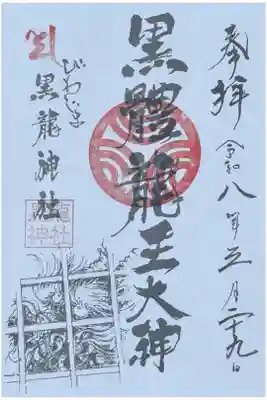 奉拝
令和八年五月二十九日
黒體龍王大神
びわじま
黒龍神社
黒龍
神社